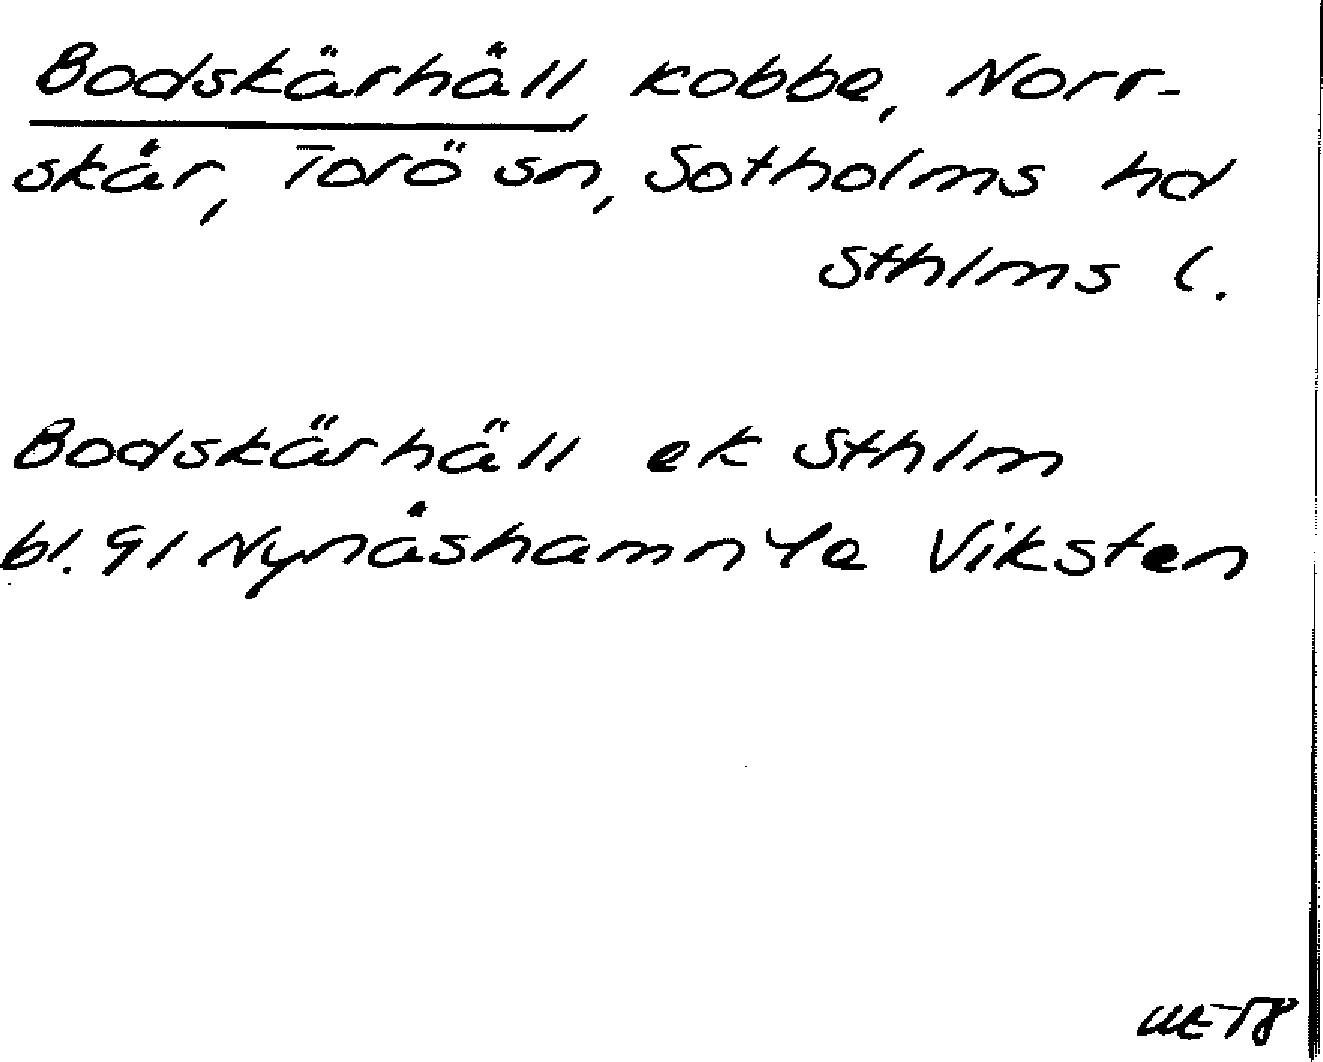 Bodskärhäll, kobbe, Norr-
skär, Torö sn, Sotholms hd
Sthlms l.
Bodskärhäll ek Sthlm
bl. 91 Nynäshamn 4e Viksten